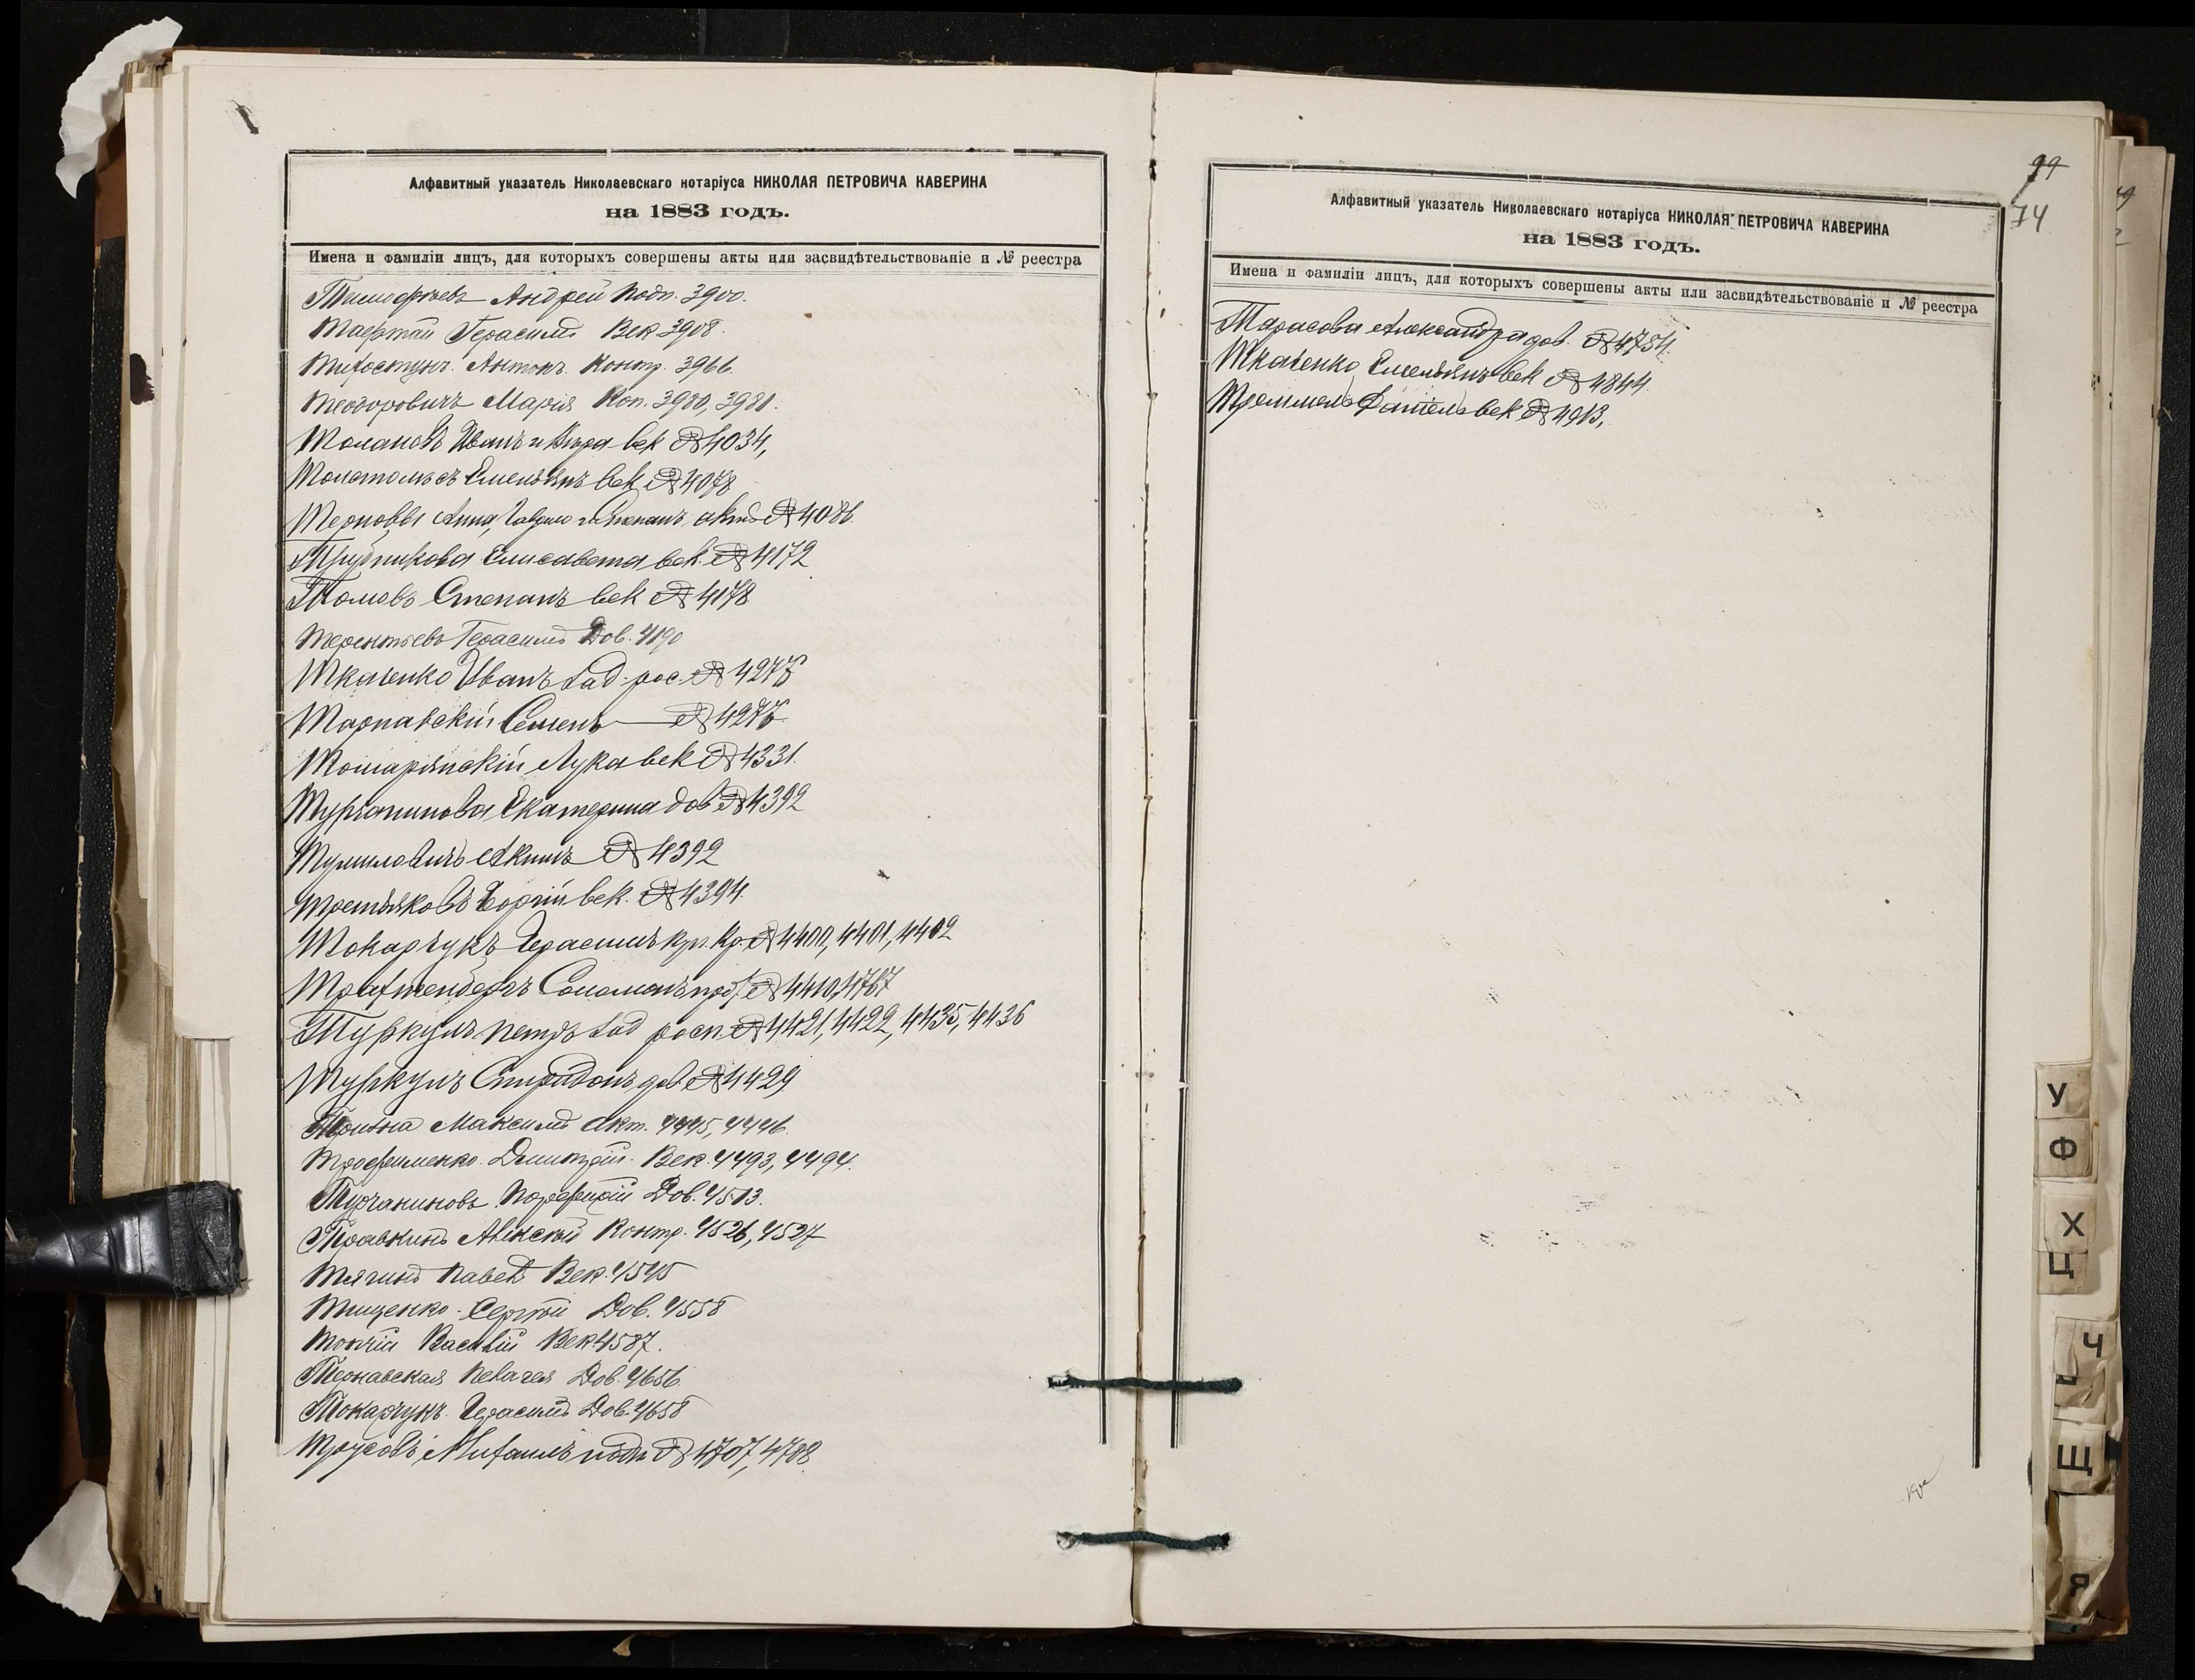 Алфавитный указатель Николаевскаго нотаріуса НИКОЛАЯ ПЕТРОВИЧА КАВЕРИНА
на 1883 годъ.
Имена и фамиліи лицъ, для которыхъ совершены акты или засвидѣтельствованіе и № реестра
Тимофѣевъ Андрей Подп. 3900.
Герасимъ Век 3908.
Антонъ. Контр. 3966.
Теодоровичъ Марія Коп. 3980, 3981.
Иванъ и век № 4034,
Емельянъ век № 4078
Терновы Анна, и Степанъ актъ № 4086.
Елисавета век. № 4172
Томовъ Степанъ век № 4178
Терентьевъ Герасимъ Дов. 4190
Ткаченко Иванъ рос. № 4277
Тарнавскій Семенъ — № 4277
Лука век № 4331.
Турчанинова Екатерина дов № 4392
Акимъ № 4392
Третьяковъ век. № 4394.
Токарчукъ Герасимъ № 4400, 4401, 4402
Соломонъ № 4410, 4767
Туркулъ Петръ росп № 4421, 4422, 4435, 4436
Туркулъ Спиридонъ дов. № 4429
Максимъ Акт. 4445, 4446.
Трофименко. Дмитрій. Век. 4493, 4494.
Турчаниновъ Порфирій Дов. 4513.
Травкинъ Алексѣй Контр. 4526, 4527
Тягинъ Павелъ Век. 4545
Тищенко. Сергѣй Дов. 4558
Василій Век 4587.
Тернавская Пелагея Дов. 4656.
Токарчукъ. Герасимъ Дов. 4658
Трусовъ Михаилъ подп № 4707, 4788.
99
74
Алфавитный указатель Николаевскаго нотаріуса НИКОЛАЯ ПЕТРОВИЧА КАВЕРИНА
на 1883 годъ.
Имена и фамиліи лицъ, для которыхъ совершены акты или засвидѣтельствованіе и № реестра
Тарасова Александра дов. № 4754.
Ткаченко Емельянъ век № 4844.
век № 4913,
У
Ф
Х
Ц
Ч
Щ
Я